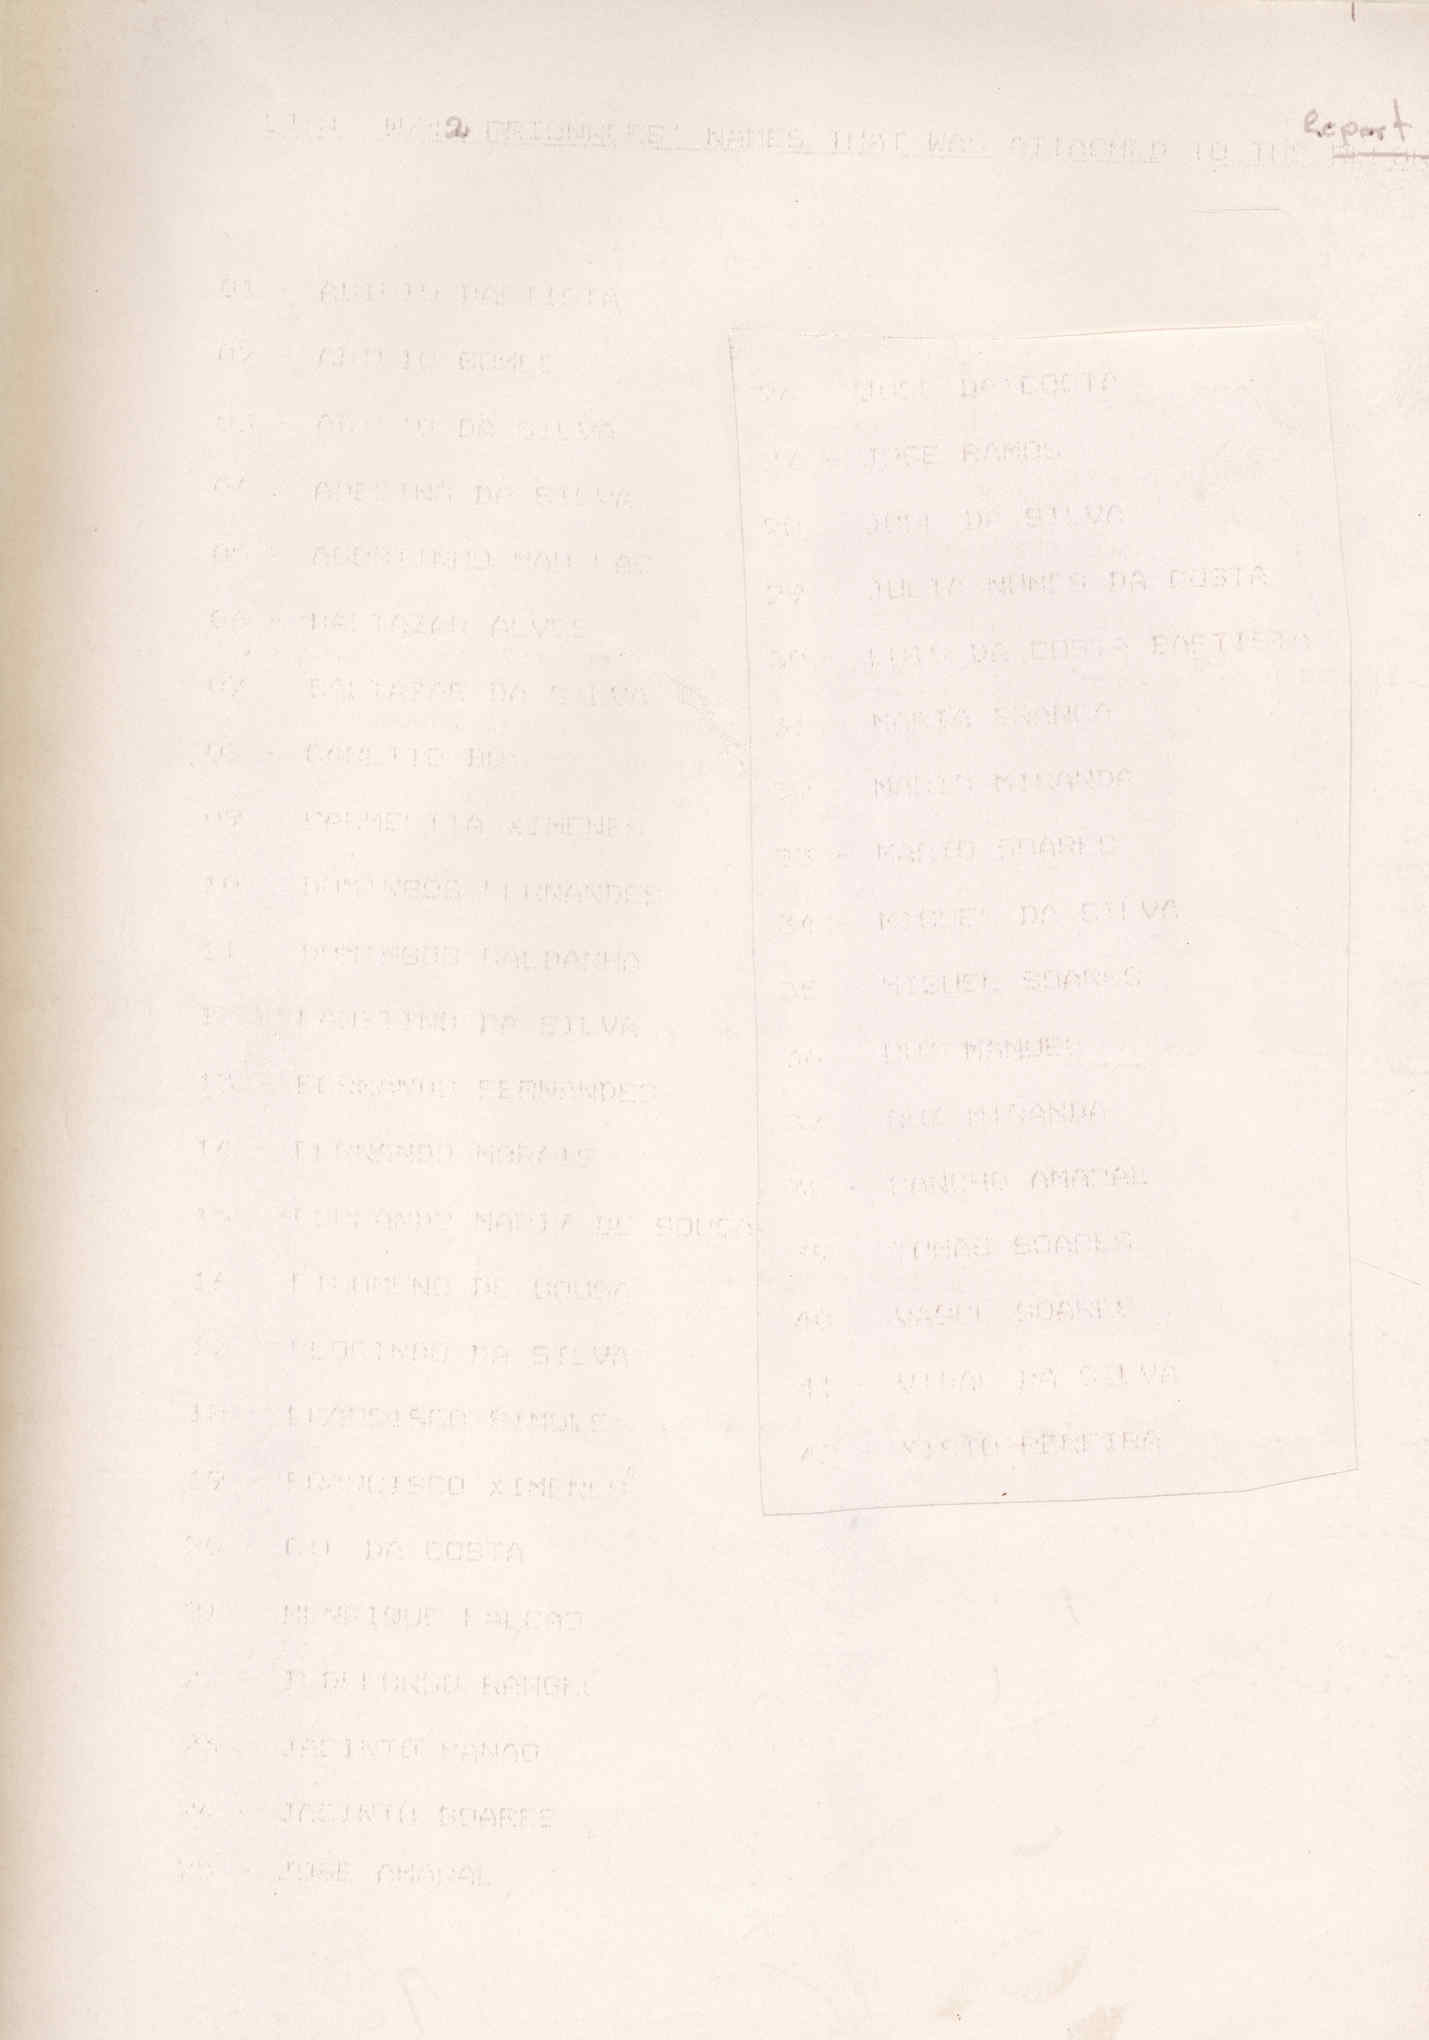 2 PRISONNERS' NAMES THAT WAS ATTACHED TO THE
Report
01 - BAPTISTA
02 - GOMES
03 - DA SILVA
04 - ADELINO DA SILVA
05 - AGOSTINHO MAU LAE
06 - BALTAZAR ALVES
07 - BALTAZAR DA SILVA
08 -
09 - CARMELITA XIMENES
10 - DOMINGOS FERNANDES
11 - DOMINGOS SALDANHA
12 - FAUSTINO DA SILVA
13 - FERNANDO FERNANDES
14 - FERNANDO
15 - MARIA DE SOUSA
16 - FILOMENO DE SOUSA
17 - FLORINDO DA SILVA
18 - FRANCISCO
19 - FRANCISCO XIMENES
20 - GIL DA COSTA
21 - HENRIQUE FALCAO
22 - ILDEFONSO RANGEL
23 - JACINTO MANAO
24 - JACINTO SOARES
25 - JOSE AMARAL
26 - JOSE DA COSTA
27 - JOSE RAMOS
28 - JOSE DA SILVA
29 - JULIA NUNES DA COSTA
30 - DA COSTA BAPTISTA
31 - MARIA BRANCA
32 - MARIO MIRANDA
33 - MARIO SOARES
34 - MIGUEL DA SILVA
35 - MIGUEL SOARES
36 - MANUEL
37 - RUI MIRANDA
38 - SANCHO AMARAL
39 - TOMAS SOARES
40 - VASCO SOARES
41 - VITAL DA SILVA
42 - XISTO PEREIRA